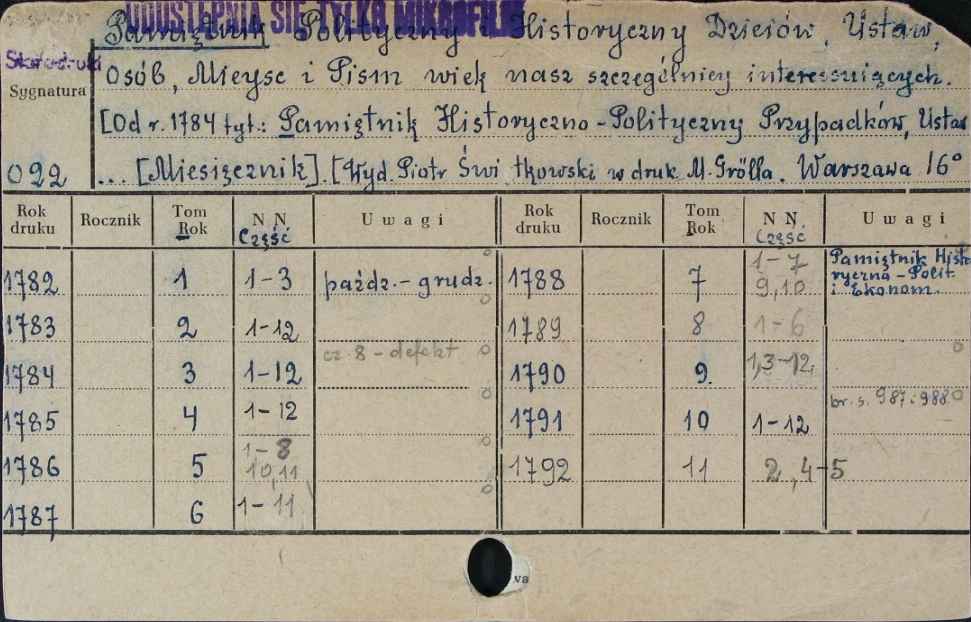 UDOSTĘPNIA SIĘ TYLKO MIKROFILM
Pamiętnik Polityczny i Historyczny Dzieiów, Ustaw,
Starodruki
osób, Mieysc i Pism wiek nasz szczególniey interessuiących.
Sygnatura
[Od r. 1784 tyt.: Pamiętnik Historyczno-Polityczny Przypadków, Ustaw
022 ... [Miesięcznik]. [Wyd. Piotr Świtkowski w druk M. Grölla. Warszawa 16°
Rok druku Rocznik Tom Rok N N Część Uwagi Rok druku Rocznik Tom Rok N N. Część Uwagi
1782 1 1-3 paźdz.- grudz. 1788 7 1-7 9,10 Pamiętnik Histo
ryczna - Polit
i Ekonom.
1783 2 1-12 1789 8 1-6
cz. 8 - defekt
1784 3 1-12 1790 9. 1,3-12,
br. s. 987 i 988
1785 4 1-12 1791 10 1-12
1786 5 1-8 10,11 1792 11 2,4-5
1787 6 1-11
wa